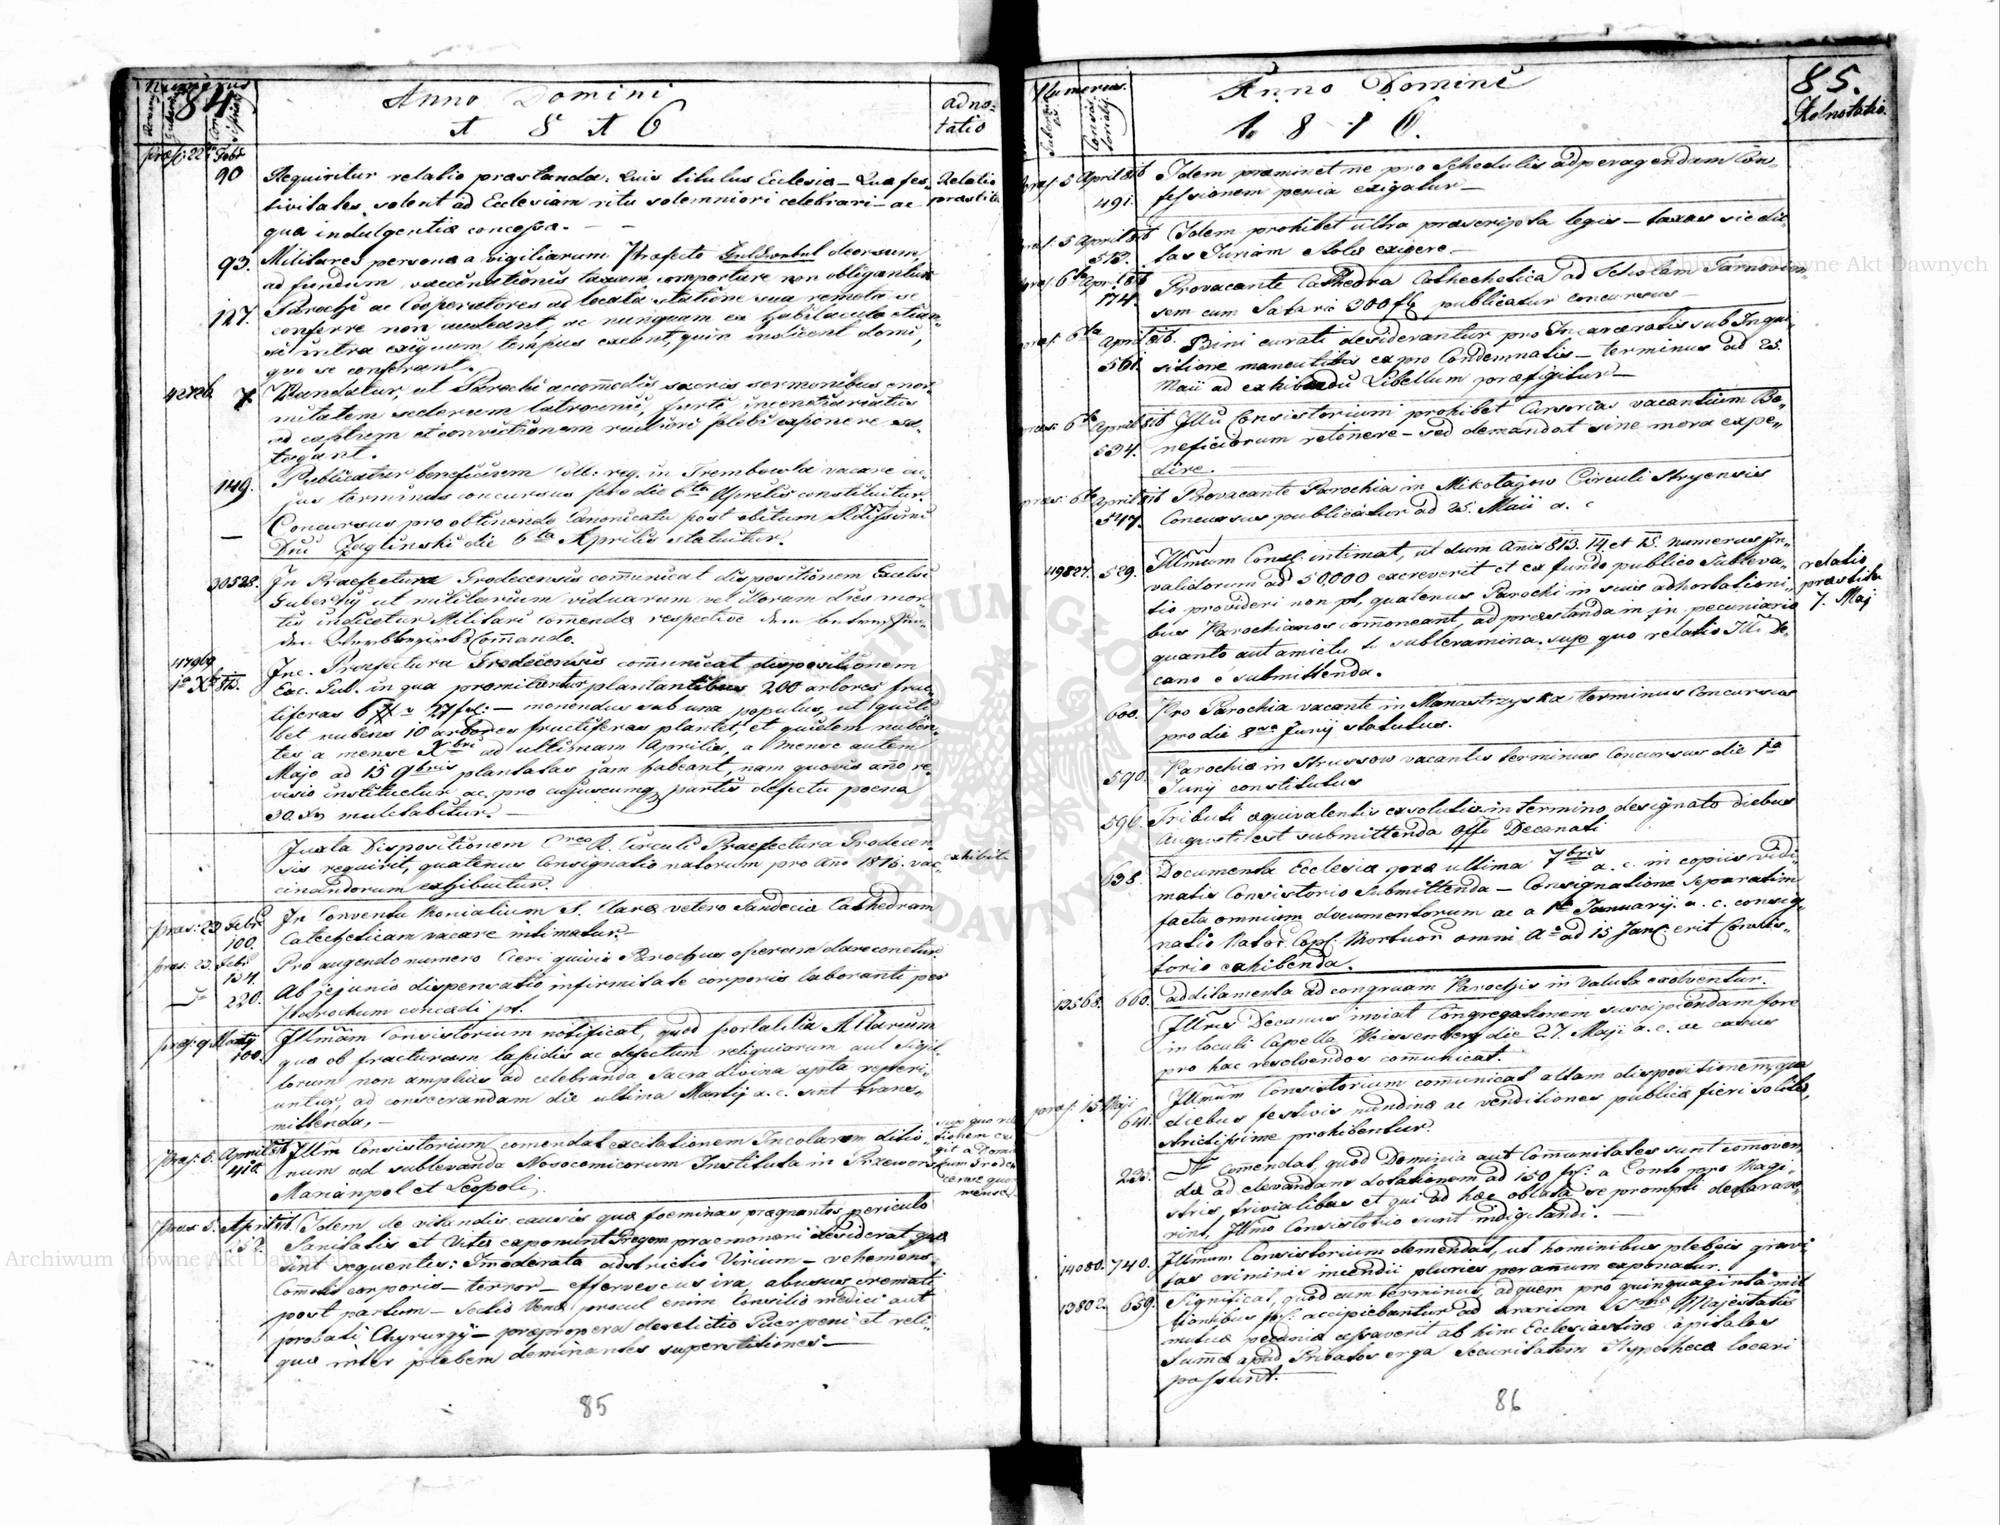 Numerus
84
Anno Domini
1816
adno-
tatio
præs: 22 Febr
90 Requiritur relatio præstanda: Quis titulus Ecclesiæ – Quæ fes-
tivitates solent ad Ecclesiam ritu solemniori celebrari – ac
quæ indulgentiæ concessæ. –
Relatio
præstita
93. Militares personæ a vigiliarum Præfecto deorsum
ad fundum vaccinationis taxam comportare non obligantur
127. Parochi ac Cooperatores ad locata statione sua remota se
conferre non audeant, ac nunquam ex habitaculo etiam
si intra exiguum tempus exeant, quin indicent domi,
quo se conferant.
42726. 7. Mandatur, ut Parochi accomodis sacris sermonibus enor-
mitatem scelerum latrocinii, furti, incendiariatus
ad captum et convictionem rudioris plebis exponere sa-
tagant.
149. Publicatur beneficium Coll: reg. in Trembowla vacare cu-
jus terminus concursus pro die 6ta Aprilis constituitur.
— Concursus pro obtinendo Canonicatu post obitum Rdissimi
Dni Zaglinski die 6ta Aprilis statuitur.
30528. In Præfectura Grodecensis com̄unicat dispositionem Excelsi
Gubernij ut militarium viduarum vel illorum dies mor-
tis indicetur Militari Comendæ respective dem
den Werbbezirks Com̄ando.
47969
1a Xb 815. Inc. Præfectura Grodecensis com̄unicat dispositionem
Exc. Gub. in qua promittantur plantantibus 200 arbores fruc-
tiferas 6 # v 27 fl.: – monendus sub una populus, ut quili-
bet nubens 10 arbores fructiferas plantet, et quidem nuben-
tes a mense Xbri ad ultimam Aprilis, a mense autem
Majo ad 15 9bris plantatas jam habeant, nam quovis año re-
visio instituetur ac, pro cujuscumq partis defectu poena
30. xr mulctabitur. –
Juxta Dispositionem Cæreo R. Circuli Præfectura Grodecen-
sis requirit, quatenus Consignatio natorum pro Año 1816. vac-
cinandorum exhibeatur.
exhibita
præs: 23 Febr
100. In Conventu Monialium S. Claræ vetero Sandeciæ Cathedram
Catechecticam vacare intimatur. –
præs: 23. Febr
154. Pro augendo numero Cleri quivis Parochus operam dare conetur
220. Ab jejunio dispensatio infirmitate corporis laboranti per
Parochum concedi pt.
præs: 9 Martij
100. Illmum Consistorium notificat, quod portatilia Altarium
quæ ob fracturam lapidis ac defectum reliquiarum aut Sigil-
lorum non amplius ad celebranda Sacra divina apta reperi-
untur, ad consecrandam die ultima Martij a. c. sint trans-
mittenda, –
præs: 5. April 816
410. Illm Consistorium comendat excitationem Incolarum ditio-
num ad sublevanda Nosocomiorum Instituta in Przeworsk
Marianpol et Leopoli.
præs 5. April 816.
252. Idem de vitandis causis quæ foeminas prægnantes periculo
Sanitatis et Vitæ exponunt Gregem præmoneri desiderat, quæ
sint sequentes: Imoderata adstrictio Virium – vehemens
Comotio corporis – terror – effervescens ira, abusus cremati
post partum – sectio Venæ, procul enim Consilio medici aut
probati Chyrurgi – præpropera derelictio Puerperii et reli-
quæ inter plebem dominantes superstitiones –
85
Numerus
Anno Domini
1816.
85.
Adnotatio
præs. 5 April 816
491. Idem præminet ne pro Schedulis ad peragendam Con-
fessionem pecunia exigatur –
præs: 5 April 816
512. Idem prohibet ultra præscripta legis – taxas sic dic-
tas Jurium Stolæ exigere –
præs. 6ta Apr. 816
174. Pro vacante Cathedra Cathechetica ad Scholam Tarnovien-
sem cum Salario 300 fl publicatur concursus –
præs. 6ta April 816.
561. Bini curati desiderantur pro Incarceratis sub Inqui-
sitione manentibus et pro Condemnatis – terminus ad 25.
Maii ad exhibendū Libellum præfigitur –
præs: 6ta April 816
534. Illū Consistorium prohibet Cursorias vacantium Be-
neficiorum retinere – sed demandat sine mora expe-
dire.
præs: 6ta April 816
547. Pro vacante Parochia in Mikołajow Circuli Stryensis
Concursus publicatur ad 25. Maii a. c
49827. 529. Illmum Cons. intimat, ut dum Añis 813. 14 et 15. numerus In-
validorum ad 50,000 excreverit et ex fundo publico Subleva-
tio provideri non pt, quatenus Parochi in suis adhortationi-
bus Parochianos com̄oneant, ad præstanda in pecuniario
quanto aut amictu sublevamina. supe quo relatio Ill. De-
cano e submittenda.
relatio
præstita
7. Maj
600. Pro Parochia vacante in Monastrzyska terminus Concursus
pro die 8va Junij statutus.
590. Parochiæ in Strussow vacantis terminus Concursus die 1ma
Junij constitutus
596. Tributi æquivalentis exsolutio in termino designato diebus
Augusti est submittenda Offo Decanati
635. Documenta Ecclesiæ pro ultima 7bris a. c. in copiis vidi-
matis Consistorio Submittenda – Consignatione separatim
facta omnium documentorum ac a 1ma Januarij. a. c. consig-
natio Nator Cop. Mortuor omni Aº ad 15 Jan erit Consis-
torio exhibenda.
12568. 660. additamenta ad congruam Parochis in Valuta exolventur.
Illris Decanus invitat Congregationem suscipiendam fore
in locali Capella Weissenberg die 27. Maji a. c. ac casus
pro hac resolvendos com̄unicat.
præs. 15 Maji
641. Illmum Consistorium com̄unicat altam dispositionem, qua
diebus festivis nundinæ ac venditiones publicæ fieri solitæ,
strictissime prohibentur.
235. Com̄endat, quod Dominia aut Com̄unitates sunt com̄oven-
da ad elevandam dotationem ad 150 fr: a Conto pro Magi-
stris, trivialibus et qui ad hæc oblata se prompti declarave-
rint, Illmo Consistorio sunt indigitandi. –
14080. 740. Illmum Consistorium demandat, ut hominibus plebeis gravi-
tas criminis incendii pluries per anum exponatur.
13802. 659. Significat, quod cum terminus, ad quem pro quinquaginta mil-
lionibus fr. accipiebantur ad ærarium Smæ Majestatis
mutuæ pecuniæ cessaverit ab hinc Ecclesiasticæ Capitales
Summæ apud Privatos erga Securitatem Hypothecæ locari
possunt.
86
Archiwum Główne Akt Dawnych
Archiwum Główne Akt Dawnych